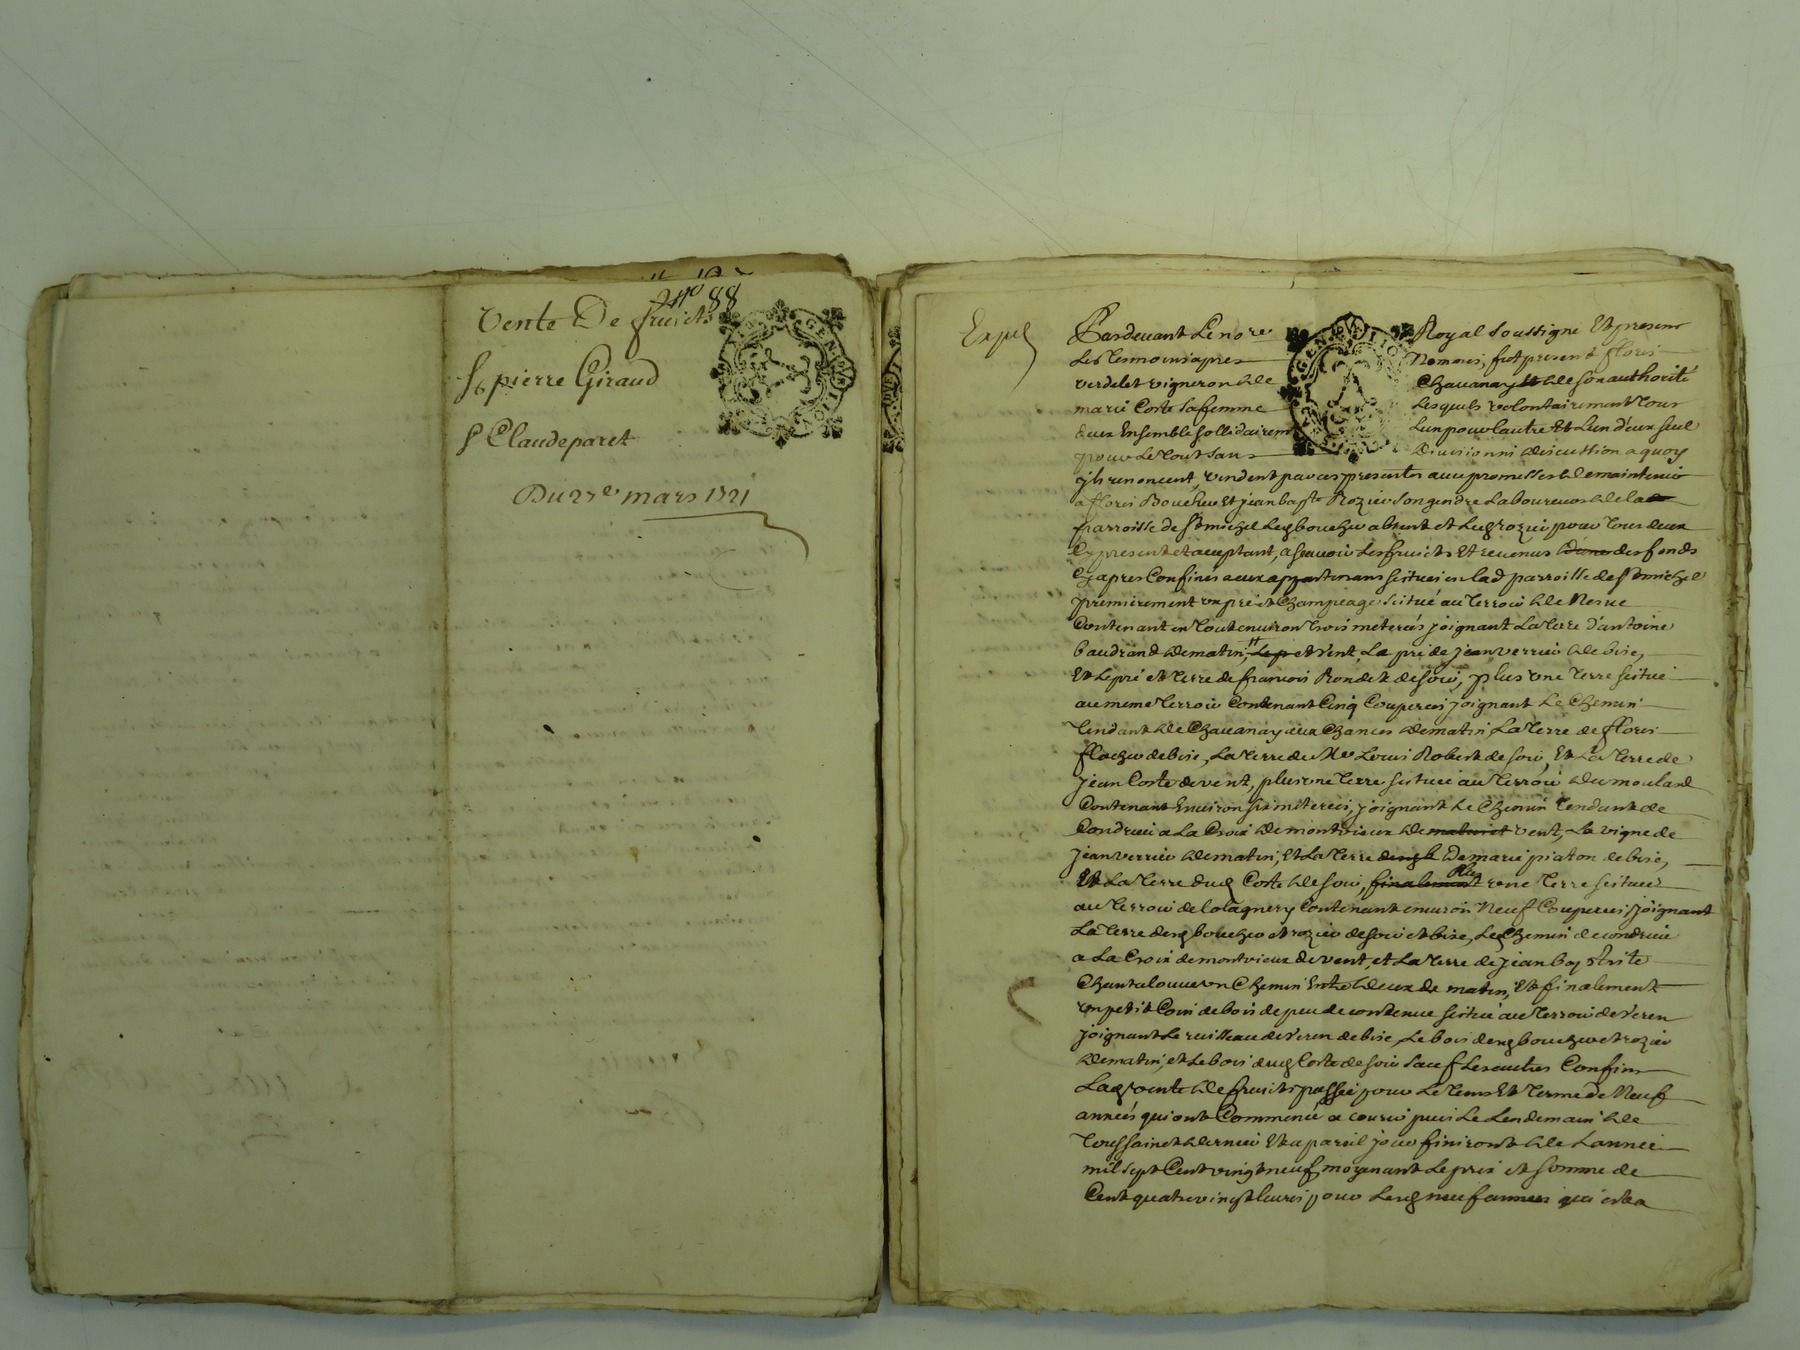 N° 88
Vente De fruicts
Sr pierre Giraud
Sr Claude paret
Du 27e mars 1721
Expié
Pardevant Le no.re Royal soussigne Et present
Les tesmoins apres Nommes, fut present floris
verdelet vigneron de Chavanay et de son authorité
marie Coste sa femme Lesquels volontairement tour
deux Ensemble sollidairemt Lun pour lautre Et Lun d'eux seul
pour Le tout sans Division ni discussion a quoy
jls renoncent, vendent par ces presentes avec promesses de maintenir
a floris Boucher Et jean bapte Rozier son gendre Laboureurs de la
parroisse de st michel Led boucher absent et Led rozier pour tous deux
Cy present et aceptant, a scavoir Les fruicts Et revenus d'une des fonds
Cy apres Confinés a eux appartenans scitues en lad parroisse de st michel
premierement un pré et Champeage scitué au terroir de
Contenant en tout environ trois meterées joignant La terre d'antoine
baudrand de matin, Le p et vent, La pré de jean verrier de bise,
Et Le pré et terre de francois Rondet de soir, plus une terre scitué
au meme terroir Contenant Cinq Couperées joignant Le Chemin
tendant de Chavanay aux Chances de matin, La terre de floris
flacher de bise, La terre de Mr Louis Robert de soir, Et La terre de
jean Coste de vent, plus une terre scituée au terroir du moulard
Contenant Environ six meterées, joignant Le Chemin tendant de
Condrieu a La Croix de montvieux de matin et vent, La vigne de
jean verrier de matin, Et La terre dud De marie piaton de bise,
Et La terre dud Coste de soir, finalement Plus une terre scituée
au terroir de Contenant environ Neuf Couperées, joignant
La terre desd boucher et rozier de soir et bise, Le Chemin de condrieu
a La Croix de montvieux de vent, et La terre de jean baptiste
Chantalouve un Chemin Entre deux de matin, Et finalement
un petit Coin de bois de peu de contenue scitué au terroir de Veren
joignant Le ruisseau de Veren de bise, Le bois desd boucher et rozier
de matin, et Le bois dud Coste de soir sauf Les autres Confins
Lad vente de fruicts passée pour Le tems Et terme de Neuf
années qui ont Commencé a courir puis Le Lendemain de
toussainct dernier Et a pareil jour finiront de L'année
mil sept Cent vingt neuf, moyenant Le prix et somme de
Cent quatre vingt livres pour Lesd neuf années qui est a